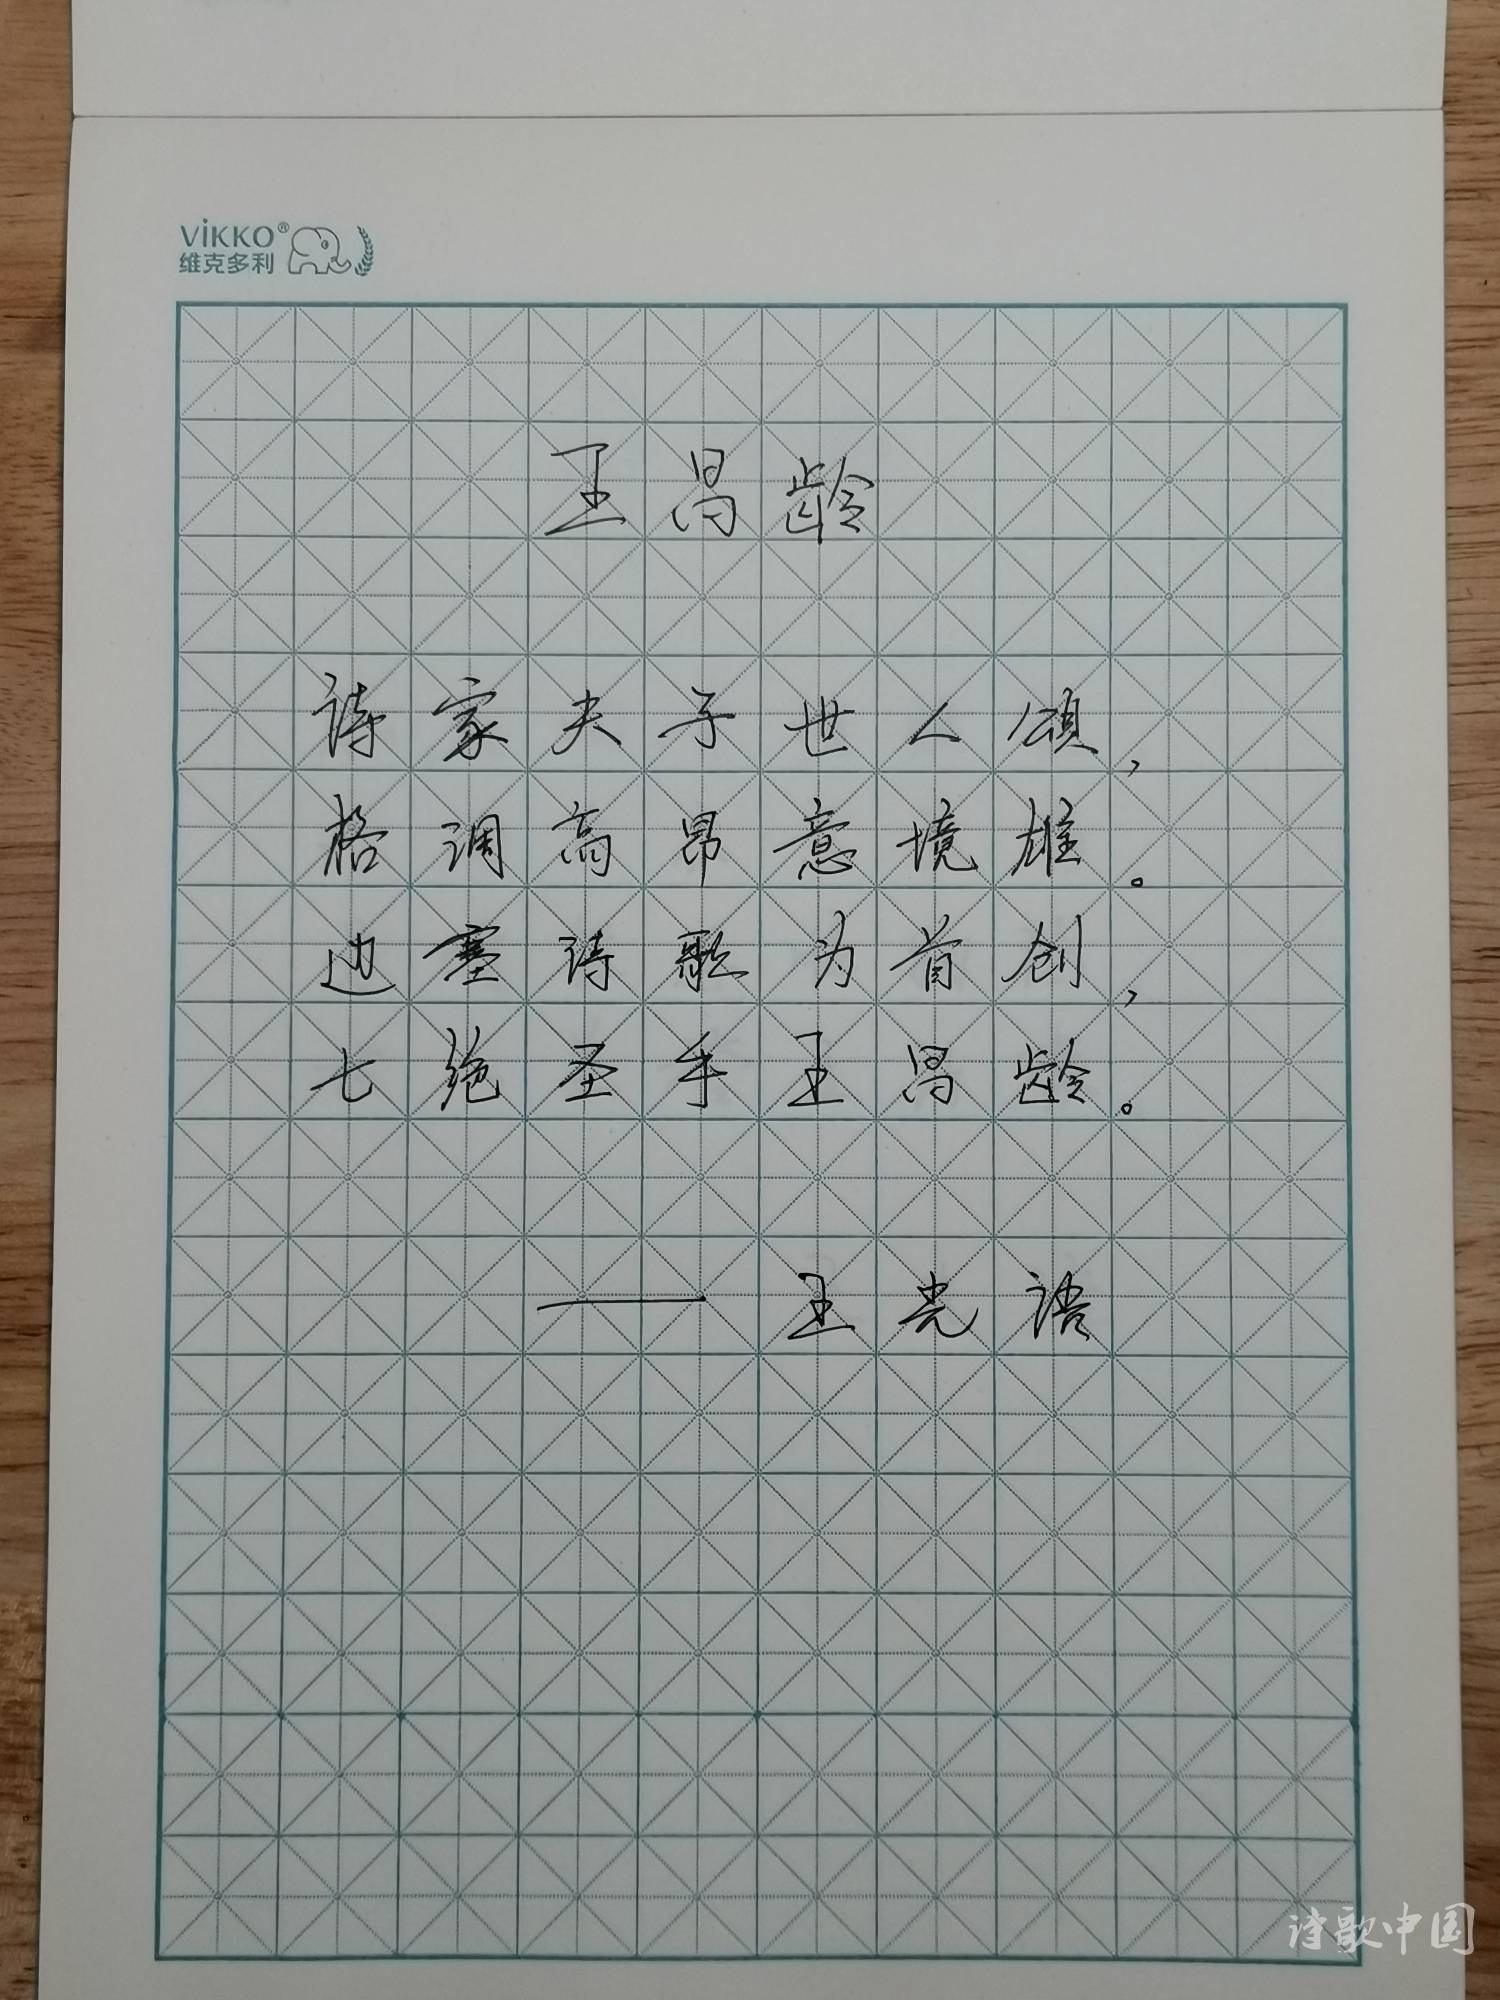 VIKKO®
维克多利
王昌龄
诗家夫子世人颂，
格调高昂意境雄。
边塞诗歌为首创，
七绝圣手王昌龄。
——王光语
诗歌中国